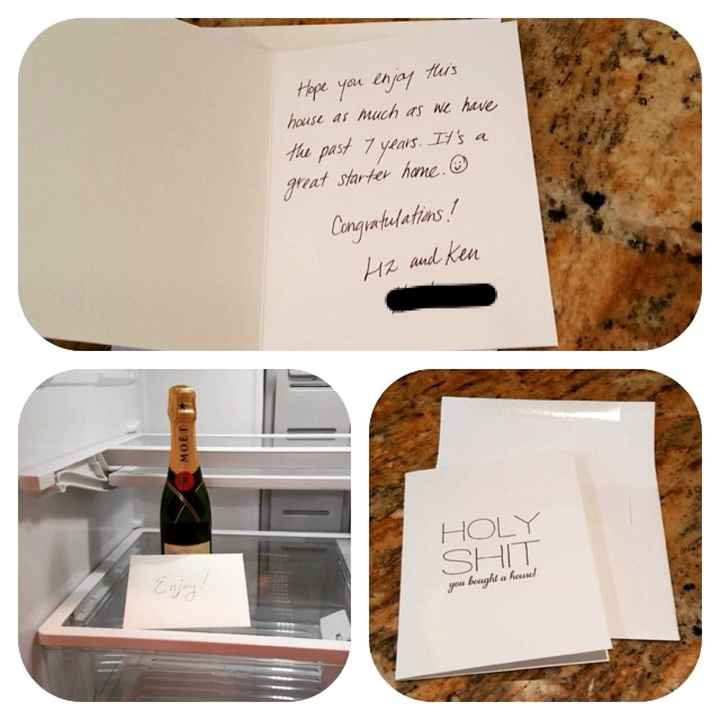 Hope you enjoy this
house as much as we have
the past 7 years. It's a
great starter home. ☺
Congratulations!
Liz and Ken
MOËT
Enjoy!
HOLY
SHIT
you bought a house!